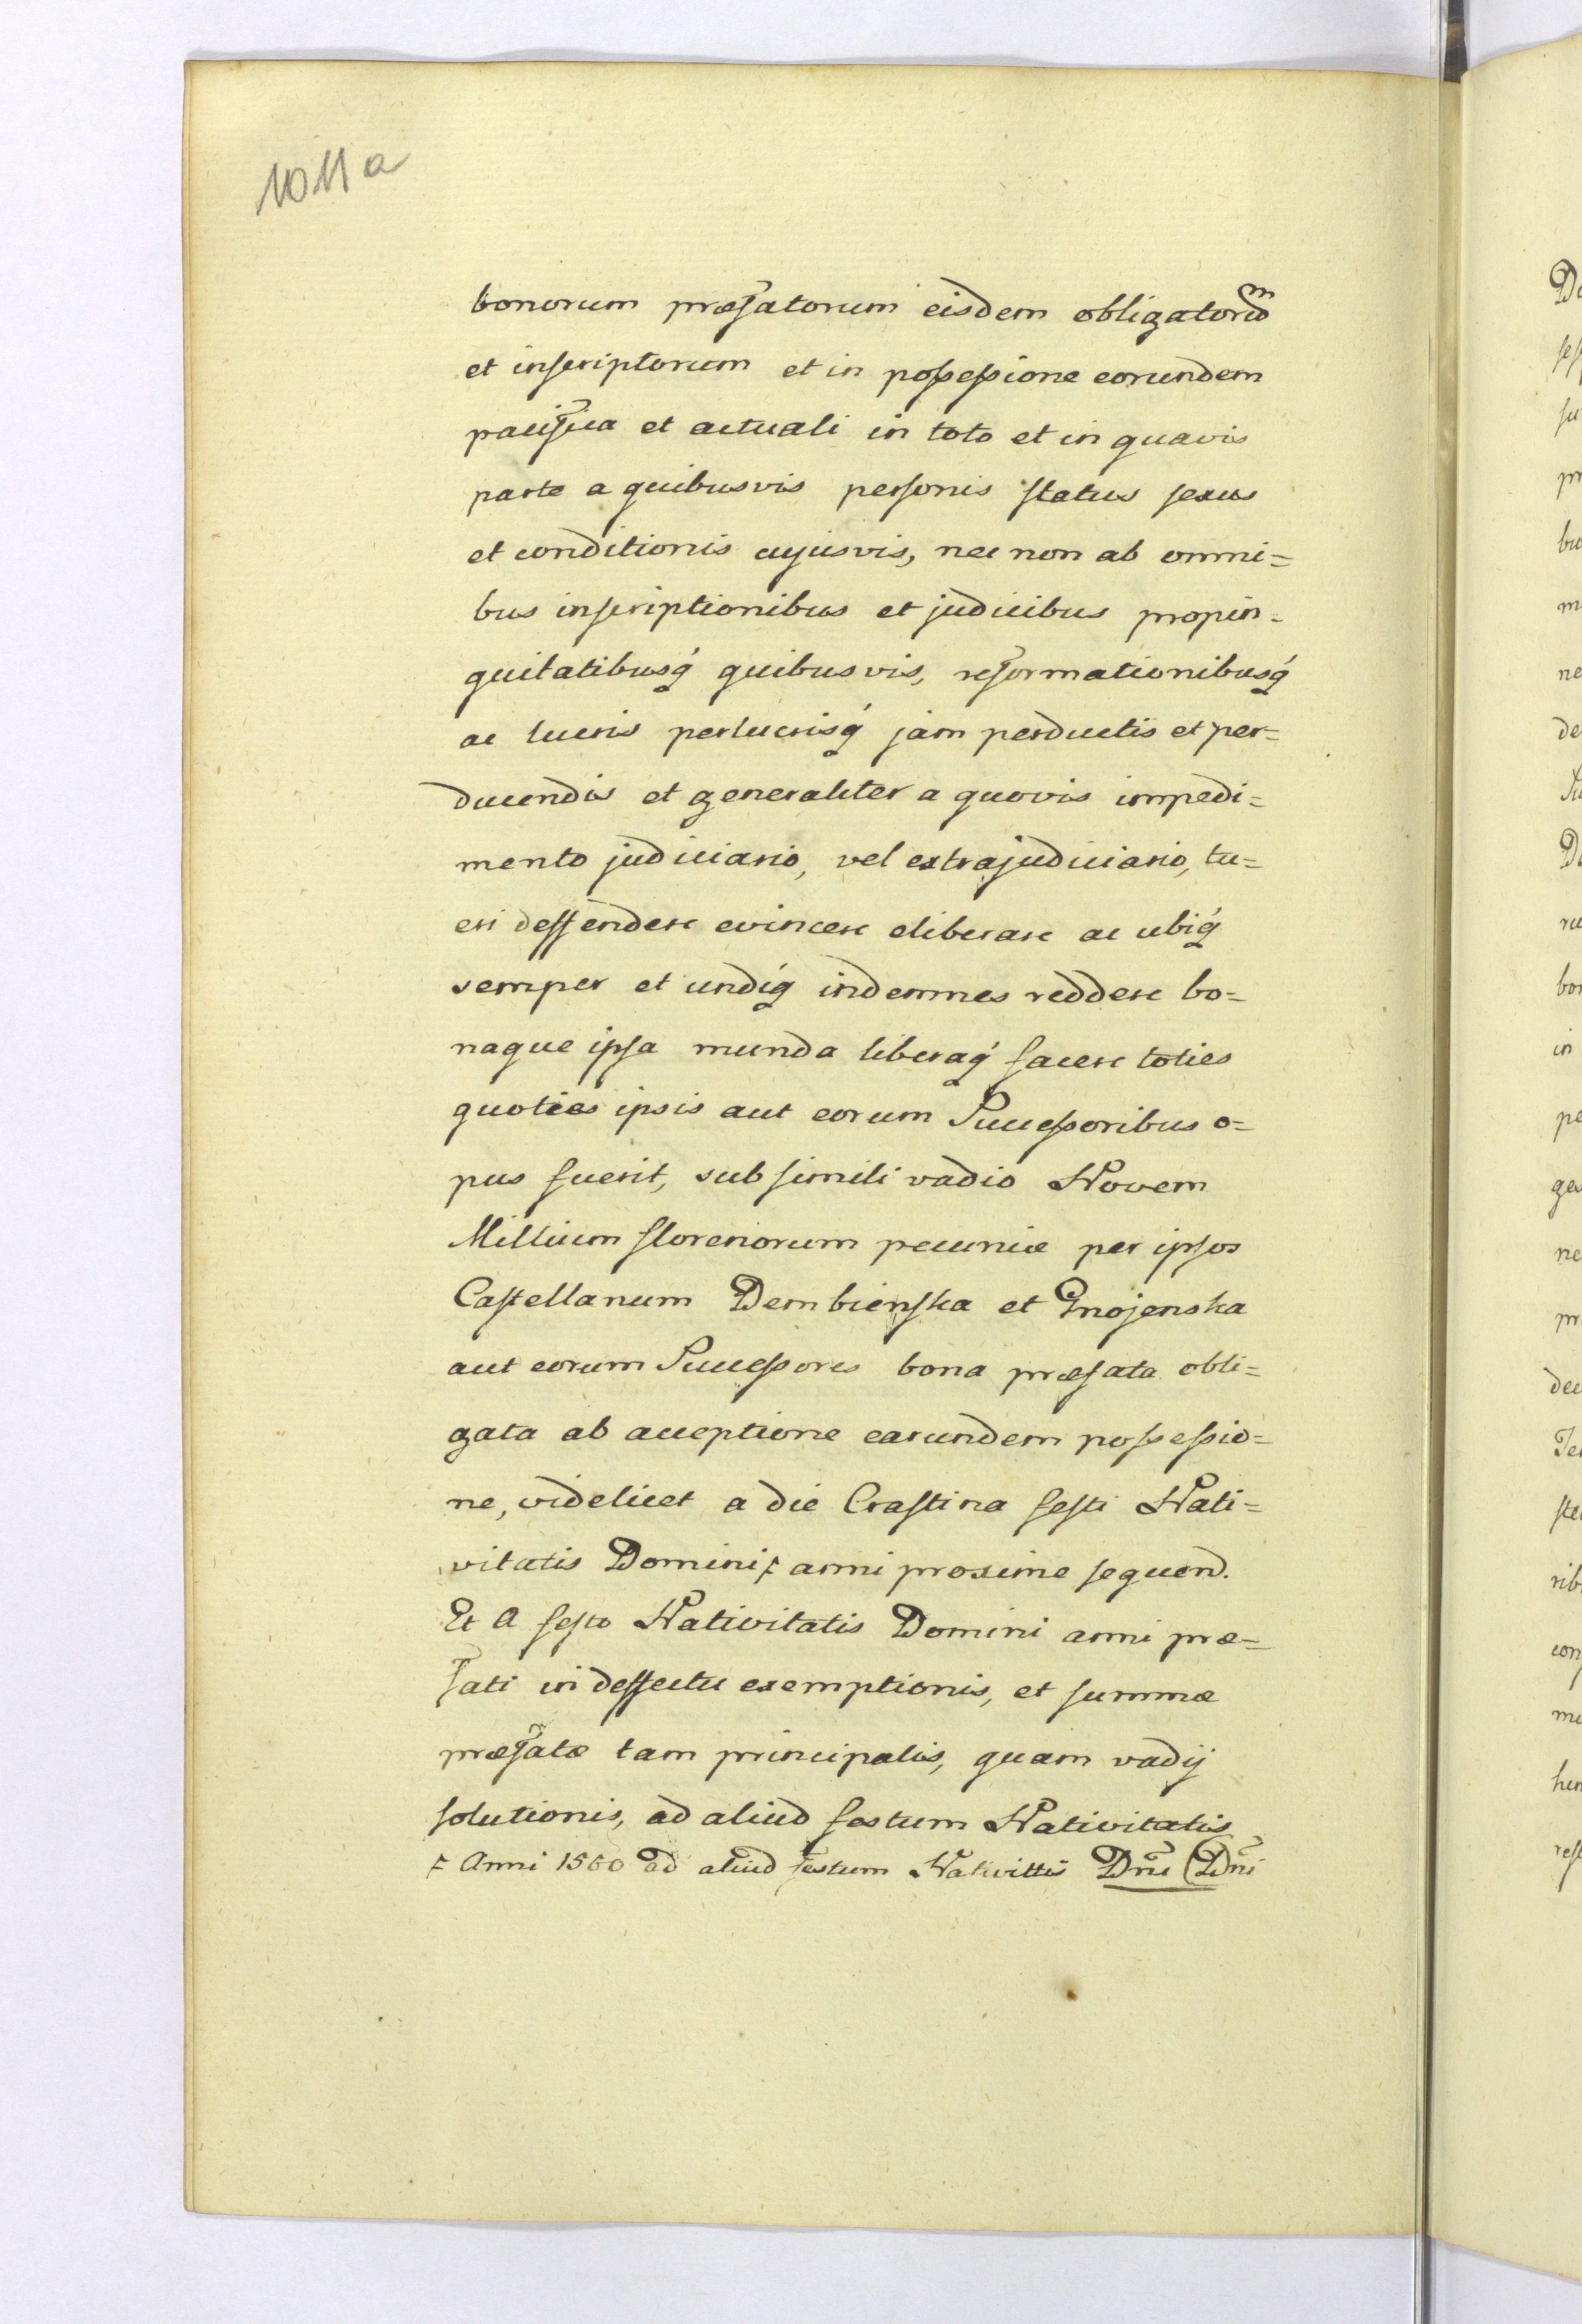 1011a
bonorum præfatorum eisdem obligatorum
et inscriptorum et in possessione eorundem
pacifica et actuali in toto et in quavis
parte a quibusvis personis status sexus
et conditionis cujusvis, nec non ab omni=
bus inscriptionibus et judicibus propin=
quitatibusq́ quibusvis, reformationibusq́
ac lucris perlucrisq́ jam perductis et per=
ducendis et generaliter a quovis impedi=
mento judiciario, vel extrajudiciario, tu=
eri deffendere evincere eliberare ac ubiq́
semper et undiq́ indemnes reddere bo=
naque ipsa munda liberaq́ facere toties
quoties ipsis aut eorum Successoribus o=
pus fuerit, sub simili vadio Novem
Millium florenorum pecuniæ per ipsos
Castellanum Dembienska et Gnojenska
aut eorum Successores bona præfata obli=
gata ab acceptione earundem possessio=
ne, videlicet a die Crastina festi Nati=
vitatis Domini ⹀ anni proxime sequend.
Et a festo Nativitatis Domini anni præ=
fati in deffectu exemptionis, et summæ
præfatæ tam principalis, quam vadij
solutionis, ad aliud festum Nativitatis
⹀ Anni 1560 ad aliud festum Nativittis Dnĩ (Dnĩ